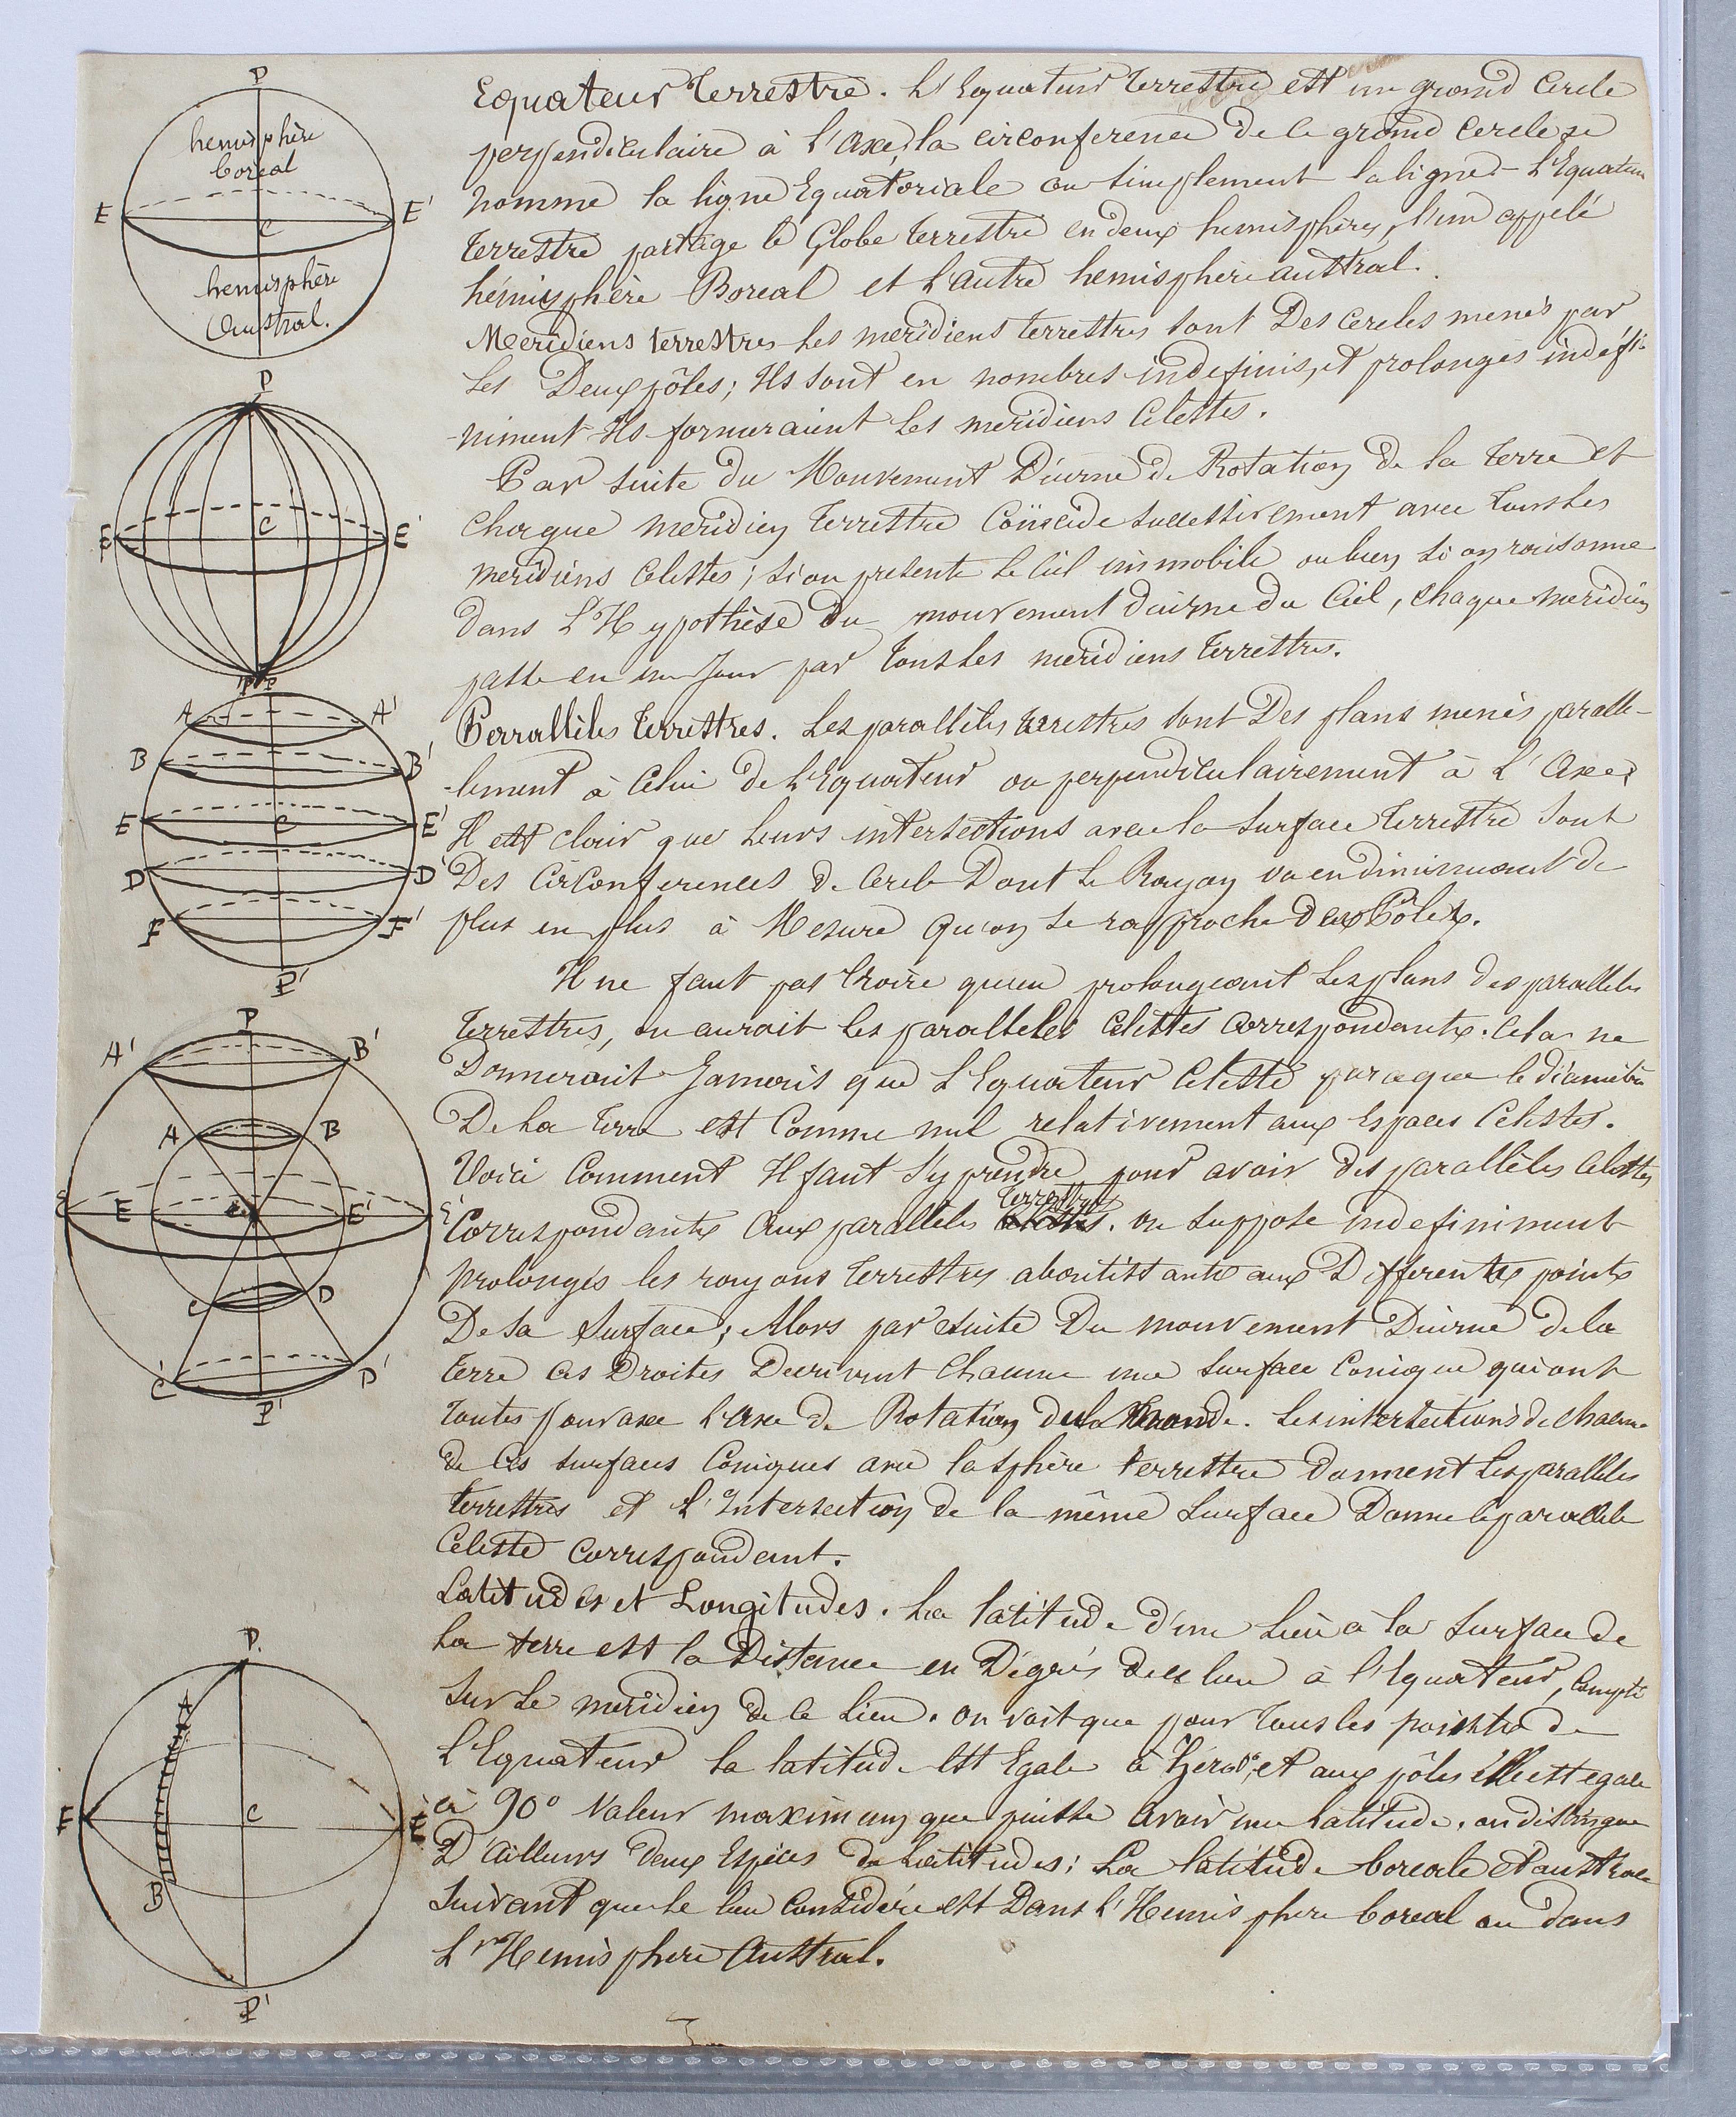 P
hemisphère
boréal
E
E'
C
hemisphère
Austral.
P
E
C
E'
P'
P
A
A'
B
B'
E
C
E'
D
D'
F
F'
P'
P
A'
B'
A
B
E
E
E'
E'
C
D
C'
D'
P'
P.
A
E
C
E'
B
P'
Equateur Terrestre. L'Equateur Terrestre est un grand Cercle
perpendiculaire à l'Axe, la circonference de ce grand Cercle se
nomme la ligne Equatoriale ou simplement la ligne - L'Equateur
Terrestre partage le Globe Terrestre en deux hemisphères, l'un appelé
hémisphère Boreal et l'autre hemisphère austral.
Meridiens terrestres Les meridiens Terrestres sont Des Cercles menés par
Les Deux pôles; Ils sont en nombres indefinis, et prolongés indéfi-
niment Ils formeraient Les meridiens Célestes.
Par suite du Mouvement Diurne de Rotation de la Terre et
Chaque meridien Terrestre Coïncide successivement avec tous les
meridiens Celestes; si on presente le Ciel immobile ou bien si on raisonne
Dans L'Hypothèse Du mouvement diurne du Ciel, Chaque meridien
passe en un Jour par Tous Les meridiens Terrestres.
Parrallèles Terrestres. Les parallèles terrestres sont Des plans menés paralle-
-lement à Celui de L'Equateur ou perpendiculairement à L'Axe,
Il est clair que Leurs intersections avec la surface Terrestre sont
Des Circonferences de Cercle Dont Le Rayon va en diminuant de
plus en plus à Mesure qu'on se rapproche des Pôles.
Il ne faut pas Croire qu'en prolongeant Les plans des parallèles
Terrestres, on aurait les parallèles Célestes Correspondants. Cela ne
Donnerait Jamais que L'Equateur Céleste parceque le diamètre
De La Terre est Comme nul relativement aux Espaces Célestes.
Voici Comment Il faut s'y prendre pour avoir des parallèles Célestes
Terrestres
Correspondants Aux parallèles celestes. on suppose indefiniment
prolongés les rayons Terrestres aboutissants aux Differents points
De sa surface; Alors par suite Du mouvement Diurne de la
Terre Ces Droites Decrivent Chacune une surface Conique qui ont
Toutes pour axe L'Axe de Rotation du Monde. Les intersections de chacune
de Ces surfaces Coniques avec la sphère Terrestre donnent Les parallèles
Terrestres et L'Intersection de la même surface Donne le parallèle
Céleste Correspondant.
Latitudes et Longitudes. La latitude d'un Lieu à la surface de
La terre est la Distance en Dégrés de ce lieu à l'Equateur, Compté
sur le meridien de ce Lieu. on voit que pour Tous les points de
L'Equateur la latitude est Egale à Zero; et aux pôles elle est egale
à 90° Valeur maximum que puisse avoir une Latitude. on distingue
D'Ailleurs Deux Espèces de Latitudes: La latitude boreale et australe
suivant que Le lieu Considéré est Dans L'Hemisphère boreal ou dans
L'Hemisphère Austral.